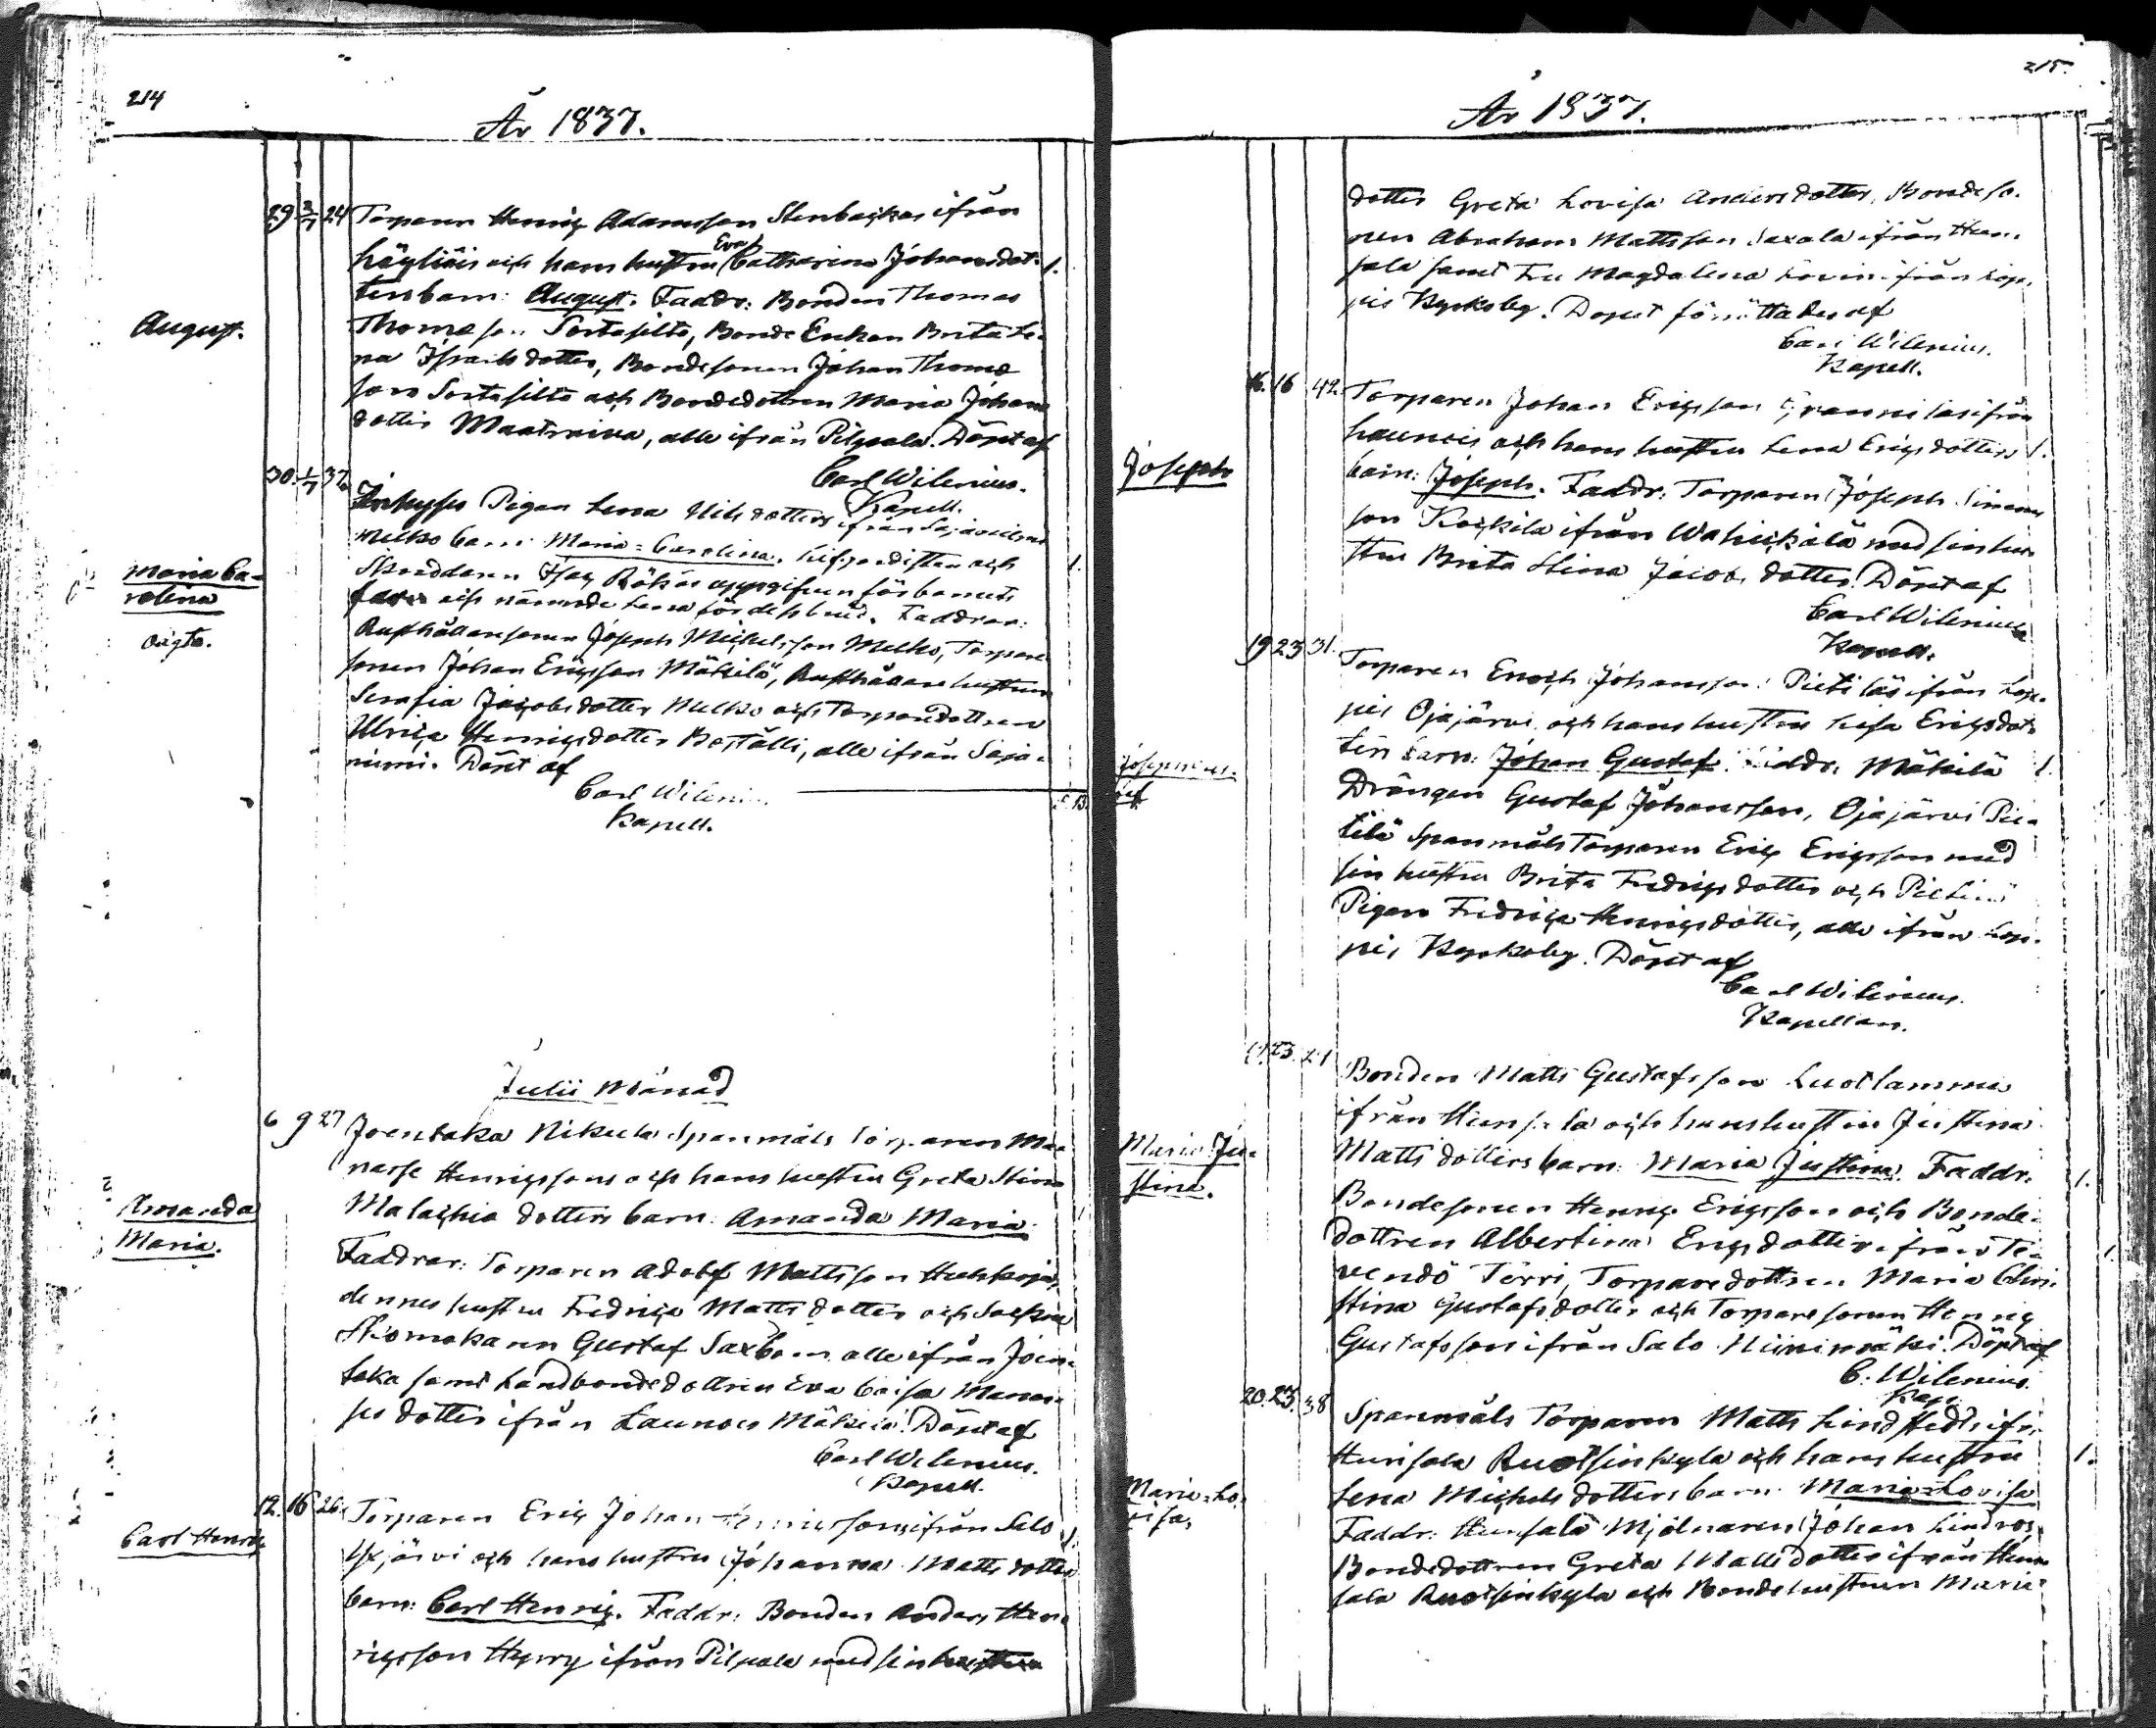 214
År 1837.
29 2/7 24 Torparen Henric Adamsson Stenbackas ifrån
Läyliäis och hans hustru Eva Catharina Johansdot-
ters barn: August. Faddr: Bonden Thomas
August.
Thomeson Sortasilta, Bonde Enkan Brita Le-
na Israelsdotter, Bondesonen Johan Thome
son Sortasilta och Bondedottren Maria Johans
dotter Maatraiva, alle ifrån Pilpala. Döpt af
Carl Wilenius.
Kapell.
30. 1/7 37 Inhyses Pigan Lena Nilsdotters ifrån Sajaniemi
Melko barn Maria=Carolina.
Maria Ca-
rolina
oägta.
Skräddaren Isac Rökäs uppgifven för barnets
fader och nämnde Lena för dess brud. Faddrar:
Rusthållaresonen Joseph Michelsson Melko, Torpare
sonen Johan Ericsson Mäkilä, Rusthållare hustrun
Serafia Jacobsdotter Melko och Torparedottren
Ulrica Henricsdotter Boställi, alle ifrån Saja-
niemi. Döpt af
Carl Wilenius
Kapell.
Julii Månad
6 9 27 Joentaka Nikula Spanmåls Torparen Ma-
nasse Henricssons och hans hustru Greta Stina
Malachiae dotters barn: Amanda Maria.
Amanda
Maria.
Faddrar: Torparen Adolf Mattsson Huhkoja,
dennes hustru Fredrica Matts dotter och Sockne
Skomakaren Gustaf Saxbom alle ifrån Joen-
taka samt Landbondedottren Eva Caisa Manas-
ses dotter ifrån Launois Mäkilä. Döpt af
Carl Wilenius.
Kapell.
12. 16 26. Torparen Eric Johan Henricssons ifrån Salo
Yxjärvi och hans hustru Johanna Matts dotters
Carl Henric
barn: Carl Henric. Faddr: Bonden Anders Hen-
ricsson Hyvry ifrån Pilpala med sin hustru
215.
År 1837.
dotter Greta Lovisa Andersdotter, Bondeso-
nen Abraham Mattsson Saxala ifrån Hun-
sala samt Fru Magdalena ifrån Lop-
pis Kyrkoby. Dopet förrättades af
Carl Wilenius.
Kapell.
16. 16 42. Torparen Johan Ericsson Grannilas ifrån
Launois och hans hustru Lena Ericsdotters 1.
Joseph
barn: Joseph. Faddr: Torparen Joseph Simons
son Koskila ifrån Wahikkälä med sin hu-
stru Brita Stina Jacobs dotter. Döpt af
Carl Wilenius
Kapell.
19 23 31. Torparen Enoch Johansson Pietiläs ifrån Lop-
pis Ojajärvi och hans hustru Lisa Ericsdot-
ters barn: Johan Gustaf. Faddr. Mäkilä 1.
Drängen Gustaf Johansson, Ojajärvi Pie-
tilä Spanmåls Torparen Eric Ericsson med
sin hustru Brita Fredricsdotter och Pietilä
Pigan Fredrica Henricsdotter, alle ifrån Lop-
pis Kyrkoby. Döpt af
Carl Wilenius.
Kapellan.
23. 21 Bonden Matts Gustafsson Luotlammi
ifrån Hunsala och hans hustru Justina
Maria Ju-
stina.
Mattsdotters barn: Maria Justina. Faddr. 1.
Bondesonen Henric Ericsson och Bonde-
dottren Albertina Ericsdotter ifrån Te-
vendö Terri, Torparedottren Maria Chri-
stina Gustafsdotter och Torparesonen Henric
Gustafsson ifrån Salo Niinimäki. Döpt af
C. Wilenius.
Kap.
20. 23. 38 Spanmåls Torparen Matts Lindstedts ifr.
Hunsala Ruotsinkylä och hans hustru 1.
Lena Michelsdotters barn Maria=Lovisa
Maria=Lo-
visa,
Faddr: Hunsala Mjölnaren Johan Lindros,
Bondedottren Greta Mattsdotter ifrån Hun-
sala Ruotsinkylä och Bondehustrun Maria